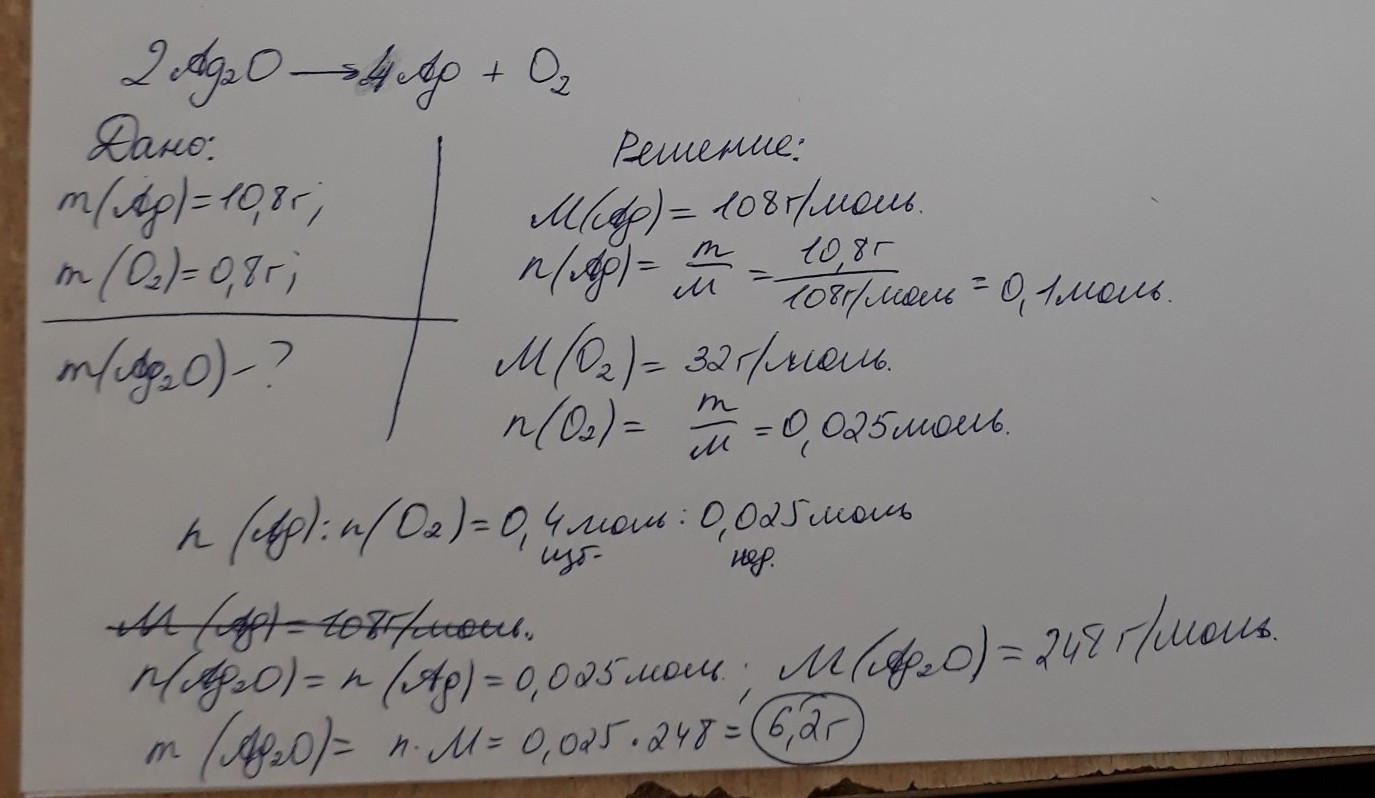 2Ag₂O → 4Ag + O₂
Дано:
m(Ag)=10,8г;
m(O₂)=0,8г;
m(Ag₂O)-?
Решение:
M(Ag)= 108г/моль.
n(Ag)= m/M = 10,8г/108г/моль = 0,1моль.
M(O₂)= 32г/моль.
n(O₂)= m/M =0,025моль.
n (Ag):n(O₂)=0,4моль:0,025моль
изб. нед.
M (Ag)=108г/моль.
n(Ag₂O)= n (Ag)=0,025моль; M(Ag₂O)=248г/моль.
m (Ag₂O)= n·M= 0,025·248= 6,2г